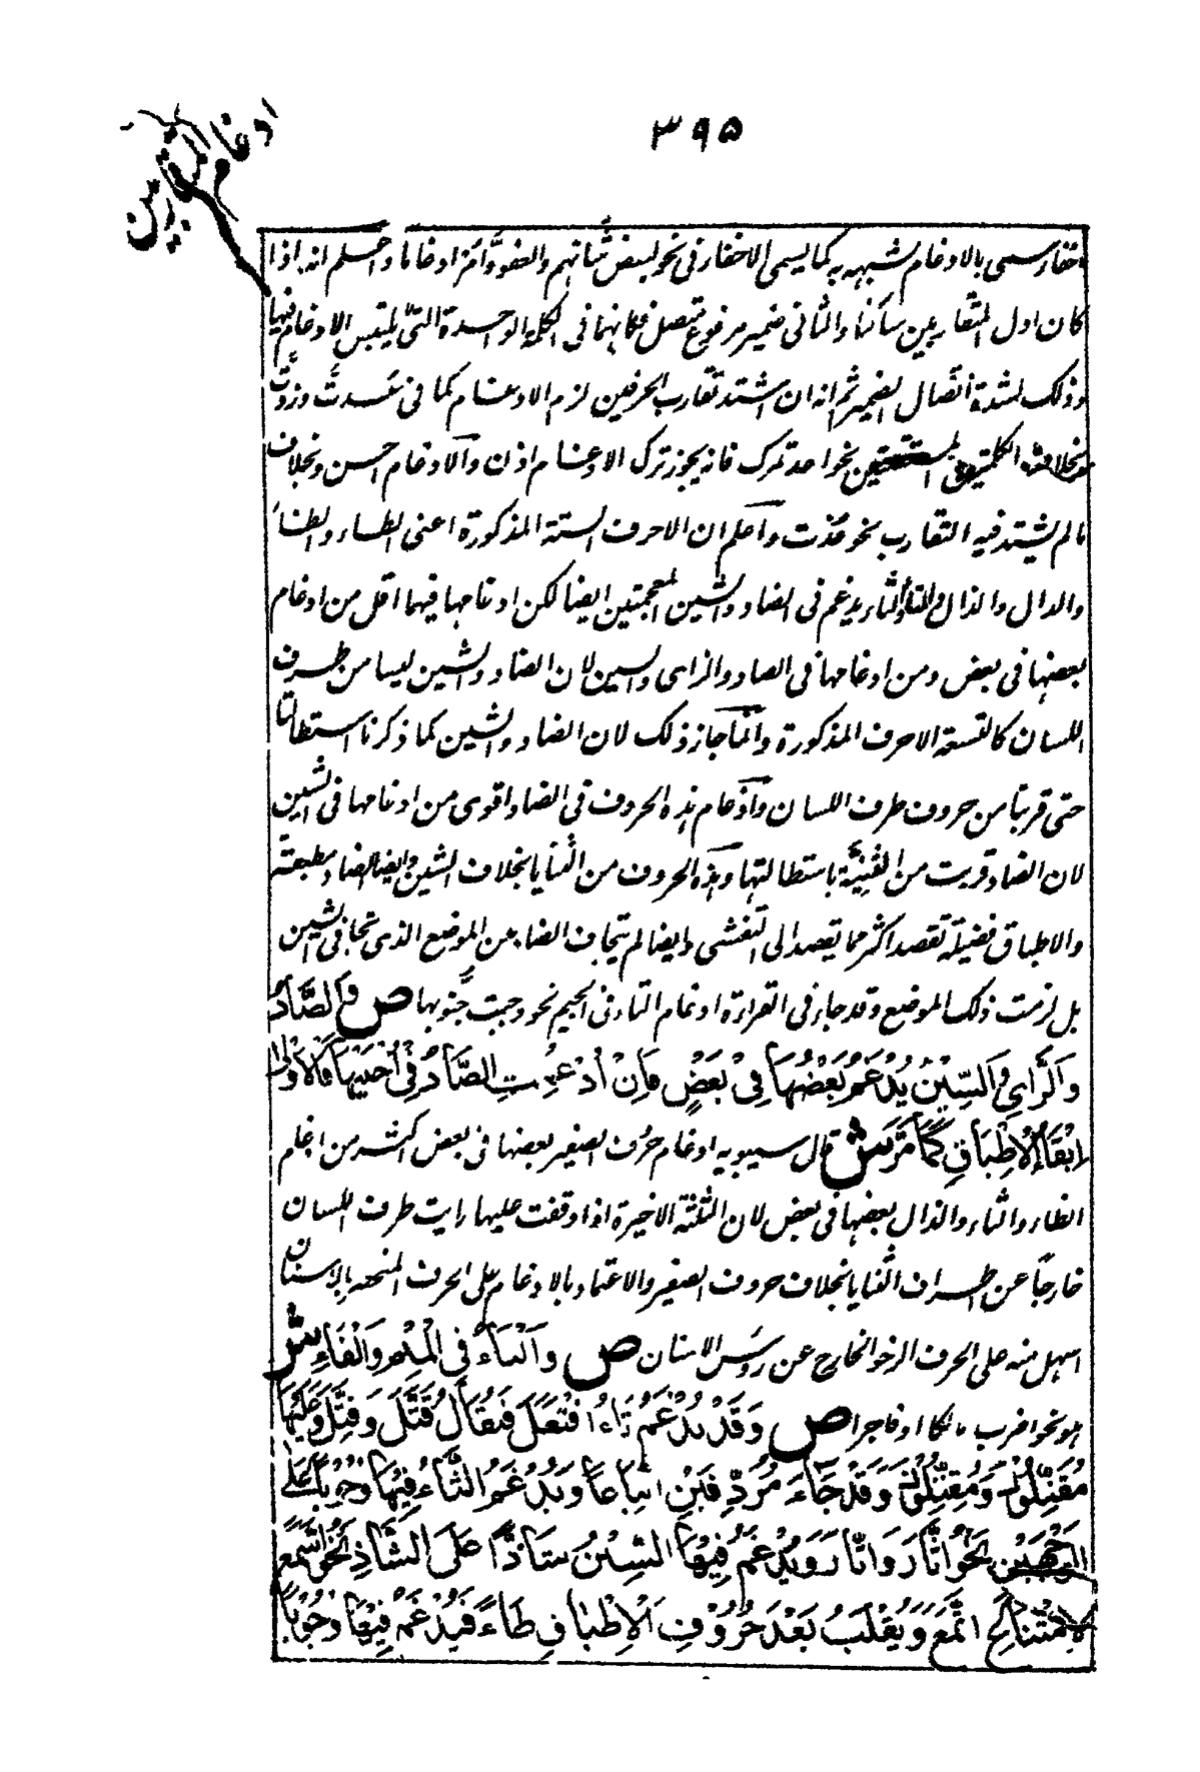 ٣٩٥
ادغام المتقاربين
اخفاء سمى بالادغام لشبهه به كما يسمى الاخفاء فى نحو لبعض شأنهم والعفو وأمر ادغاما واعلم انه اذا
كان اول المتقاربين ساكنا والثانى ضمير مرفوع متصل فكانهما فى الكلمة الواحدة التى لا يلتبس الادغام فيها
وذلك لشدة اتصال الضمير ثم انه ان اشتد تقارب الحرفين لزم الادغام كما فى عُدتُّ وزدتُّ
بخلاف الكلمتين المستقلتين نحو اعد تمرك فانه يجوز ترك الادغام اذن والادغام احسن وبخلاف
ما لم يشتد فيه التقارب نحو عُذت واعلم ان الاحرف الستة المذكورة اعنى الطاء والظاء
والدال والذال والتاء والثاء يدغم فى الضاد والشين المعجمتين ايضا لكن ادغامها فيهما اقل من ادغام
بعضها فى بعض ومن ادغامها فى الصاد والزاى والسين لان الضاد والشين ليسا من طرف
اللسان كالتسعة الاحرف المذكورة وانما جاز ذلك لان الضاد والشين كما ذكرنا استطالتا
حتى قربتا من حروف طرف اللسان وادغام هذه الحروف فى الضاد اقوى من ادغامها فى الشين
لان الضاد قربت من الثنية باستطالتها وهذه الحروف من الثنايا بخلاف الشين وايضا الضاد مطبقة
والاطباق فضيلة تقصد اكثر مما تقصد الى التفشى وايضا لم يتجاف الضاد عن الموضع الذى تجافى الشين
بل لزمت ذلك الموضع وقد جاء فى القراءة ادغام التاء فى الجيم نحو وجبت جُّنوبها ص وَالصَّادُ
وَالزَّايُ وَالسِّيْنُ يُدْغَمُ بَعْضُهَا فِى بَعْضٍ فَاِنْ أُدْغِمَتِ الصَّادُ فِى أُخْتَيْهَا فَالأَوْلٰى
اِبْقَاءُ الْاِطْبَاقِ كَمَا مَرَّ ش قال سيبويه ادغام حروف الصفير بعضها فى بعض اكثر من ادغام
الظاء والثاء والذال بعضها فى بعض لان الثلثة الاخيرة اذا وقفت عليها رايت طرف اللسان
خارجًا عن اطراف الثنايا بخلاف حروف الصفير والاعتماد بالادغام على الحرف المنحصر بالاسنان
اسهل منه على الحرف الرخو الخارج عن رؤس الاسنان ص وَالْبَاءُ فِى الْمِيْمِ وَالْفَاءِ ش
هو نحو اضرب مالكا او فاجرا ص وَقَدْ يُدْغَمُ تَاءُ افْتَعَلَ فَيُقَالُ قَتَّلَ وَقِتَّلَ وَعَلَيْهَا
مُقَتِّلُوْنَ وَمُقِتِّلُوْنَ وَقَدْ جَاءَ مُرُدِّفِيْنَ اِتْبَاعًا وَيُدْغَمُ الثَّاءُ فِيْهَا وُجُوْبًا عَلٰى
الوَجْهَيْنِ نَحْوُ اثَّارَ وَاتَّارَ وَيُدْغَمُ فِيْهَا السِّيْنُ شَاذًّا عَلَى الشَّاذِّ نَحْوُ اسَّمَعَ
لِامْتِنَاعِ اتَّمَعَ وَيُقْلَبُ بَعْدَ حُرُوْفِ الْاِطْبَاقِ طَاءً فَيُدْغَمُ فِيْهَا وُجُوْبًا